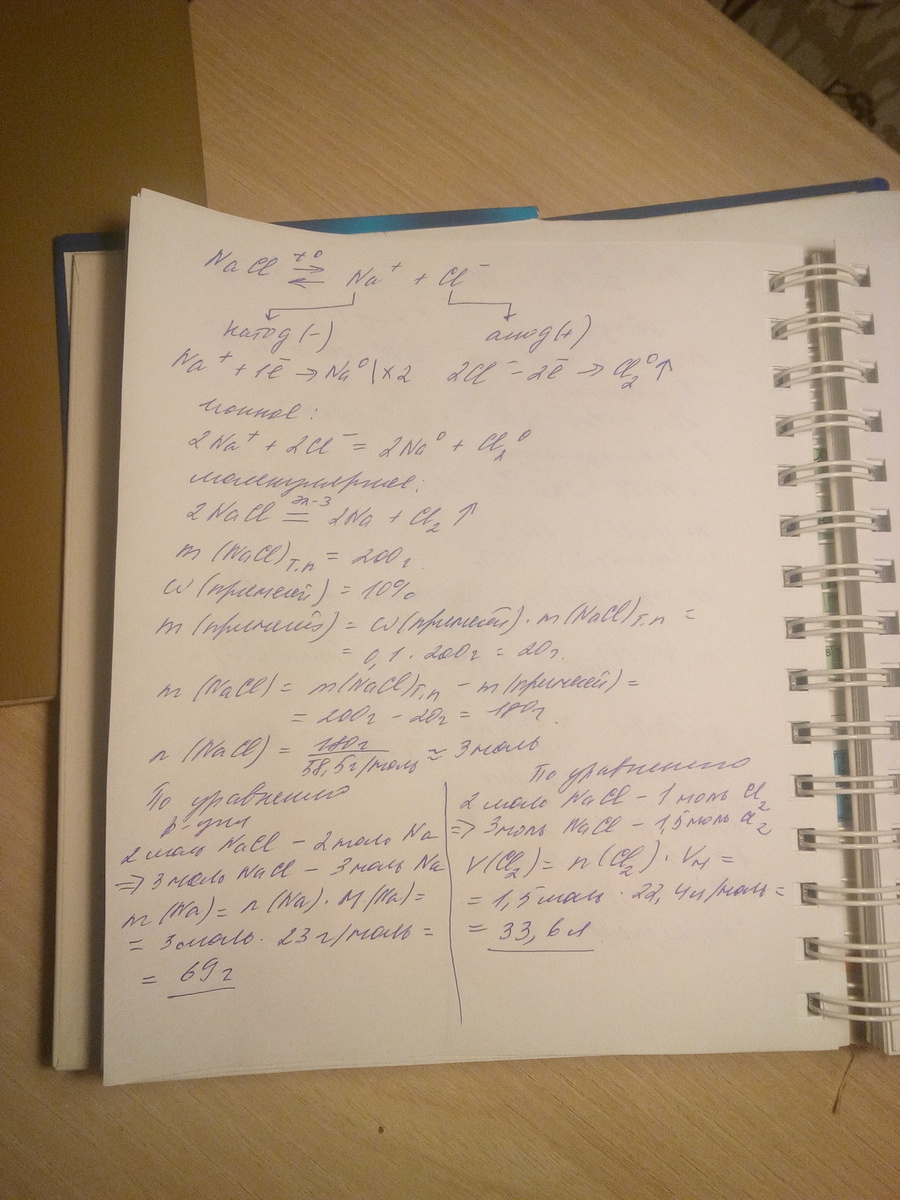 NaCl +0 ⇄ Na⁺ + Cl⁻
катод (-) анод (+)
Na⁺ + 1ē → Na⁰ | ×2 2Cl⁻ - 2ē → Cl₂⁰↑
ионное:
2Na⁺ + 2Cl⁻ = 2Na⁰ + Cl₂⁰
молекулярное:
2NaCl эл-з = 2Na + Cl₂↑
m (NaCl)т.п = 200г.
ω (примесей) = 10%
m (примесей) = ω (примесей) · m (NaCl)т.п =
= 0,1 · 200г = 20г.
m (NaCl) = m(NaCl)т.п - m(примесей) =
= 200г - 20г = 180г.
n (NaCl) = 180г / 58,5г/моль ≈ 3моль
По уравнению
р-ции
2 моль NaCl - 2моль Na
=> 3моль NaCl - 3моль Na
m (Na) = n (Na) · M (Na) =
= 3моль · 23 г/моль =
= 69г
По уравнению
2 моль NaCl - 1 моль Cl₂
=> 3моль NaCl - 1,5моль Cl₂
V(Cl₂) = n (Cl₂) · Vм =
= 1,5моль · 22,4л/моль =
= 33,6л